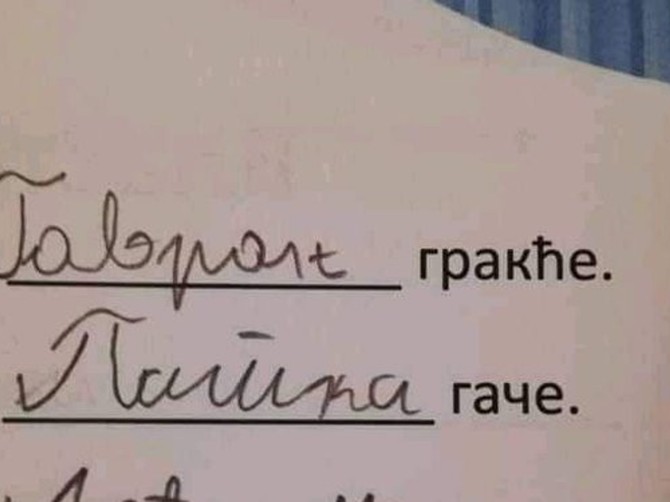 Гавран гракће.
Патка гаче.